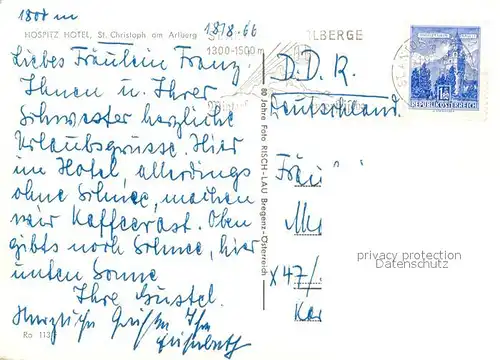 1800 m
HOSPITZ HOTEL, St. Christoph am Arlberg
18/8.66
1300-1500 m
LBERGE
Liebes Fräulein Franz.
Ihnen u. Ihrer
Schwester herzliche
Urlaubsgrüsse. Hier
im Hotel, allerdings
ohne Schnee, machen
wir Kaffeerast. Oben
gibts noch Schnee, hier
unten Sonne
Ihre Gustel.
Herzliche Grüße Ihre
Ra 113
60 Jahre Foto RISCH-LAU Bregenz-Österreich
REPUBLIK ÖSTERREICH
D.D.R.
Deutschland.
Fräu
X47/
privacy protection
Datenschutz